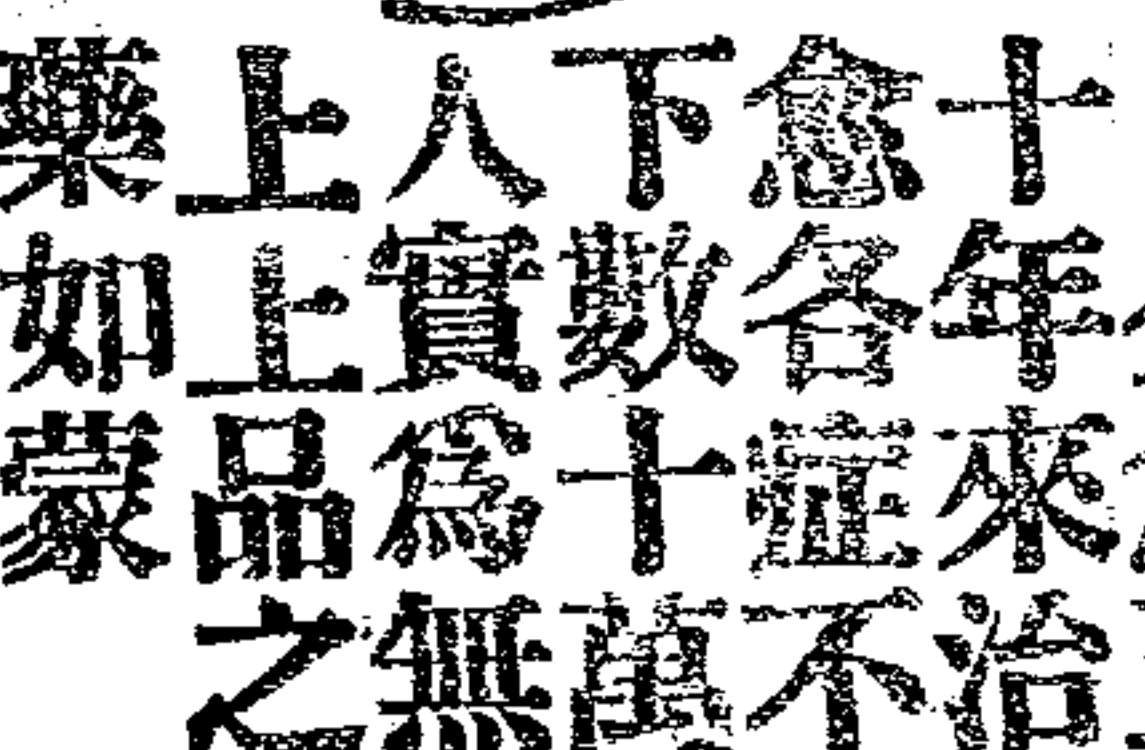 十年來治
愈各症不
下數十萬
人實為無
上上品之
藥如蒙